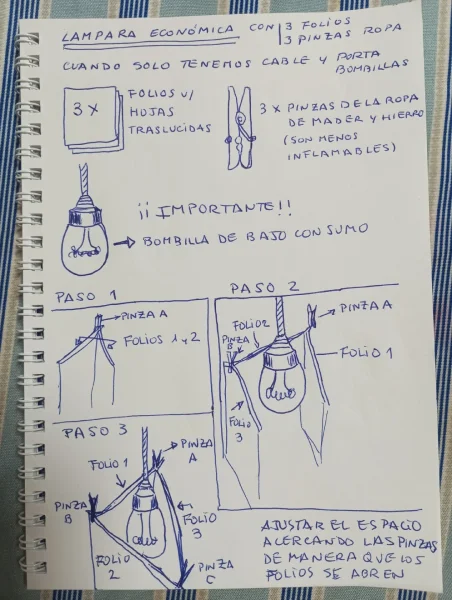 LAMPARA ECONÓMICA CON 3 FOLIOS
3 PINZAS ROPA
CUANDO SOLO TENEMOS CABLE Y PORTA
BOMBILLAS
3 X
FOLIOS U/
HOJAS
TRASLUCIDAS
3 X PINZAS DE LA ROPA
DE MADER Y HIERRO
(SON MENOS
INFLAMABLES)
¡¡IMPORTANTE!!
BOMBILLA DE BAJO CONSUMO
PASO 1
PINZA A
FOLIOS 1 Y 2
PASO 2
PINZA A
FOLIO 2
PINZA
B
FOLIO 1
FOLIO
3
PASO 3
PINZA
A
FOLIO 1
PINZA
B
FOLIO
3
FOLIO
2
PINZA
C
AJUSTAR EL ESPACIO
ACERCANDO LAS PINZAS
DE MANERA QUE LOS
FOLIOS SE ABREN